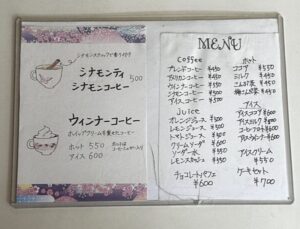 シナモンスティックで香り付け
シナモンティ
シナモンコーヒー
500
ウィンナーコーヒー
ホイップクリームを乗せたコーヒー
ホット 550
アイス 600
MENU
Coffee
ブレンドコーヒー ¥450
アメリカンコーヒー ¥450
ウィンナーコーヒー ¥550
シナモンコーヒー ¥500
アイスコーヒー ¥500
Juice
オレンジジュース ¥500
レモンジュース ¥500
トマトジュース ¥500
クリームソーダ ¥600
ソーダ水 ¥550
レモンスカッシュ ¥550
チョコレートパフェ
¥600
ホット
ココア ¥550
ミルク ¥450
こんぶ茶 ¥450
梅こんぶ茶 ¥450
アイス
アイスココア ¥600
アイスミルク ¥500
コーヒーフロート ¥600
アイスウィンナー ¥600
アイスクリーム
¥550
ケーキセット
¥700